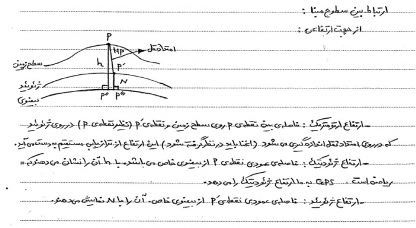 ارتباط بین سطوح مبنا :
از جهت ارتفاعی :
P
HP
امتداد ثقل
سطح زمین
h
P'
ژئوئید
N
بیضوی
P° P°
ـ ارتفاع ارتومتریک : فاصله‌ی بین نقطه‌ی P روی سطح زمین و نقطه‌ی P' (نظیر نقطه‌ی P) در روی ژئوئید
که در روی امتداد ثقل اندازه‌گیری می‌شود (انحنا باید در نظر گرفته شود) این ارتفاع از ترازیابی مستقیم به دست می‌آید.
ـ ارتفاع ژئودتیک : فاصله‌ی عمودی نقطه‌ی P از بیضوی خاص می‌باشد. با h آن را نشان می‌دهند که
ریاضی است . GPS به ما ارتفاع ژئودتیک را می‌دهد.
ـ ارتفاع ژئوئید : فاصله‌ی عمودی نقطه‌ی P' از بیضوی خاص. آن را با N نمایش می‌دهند.